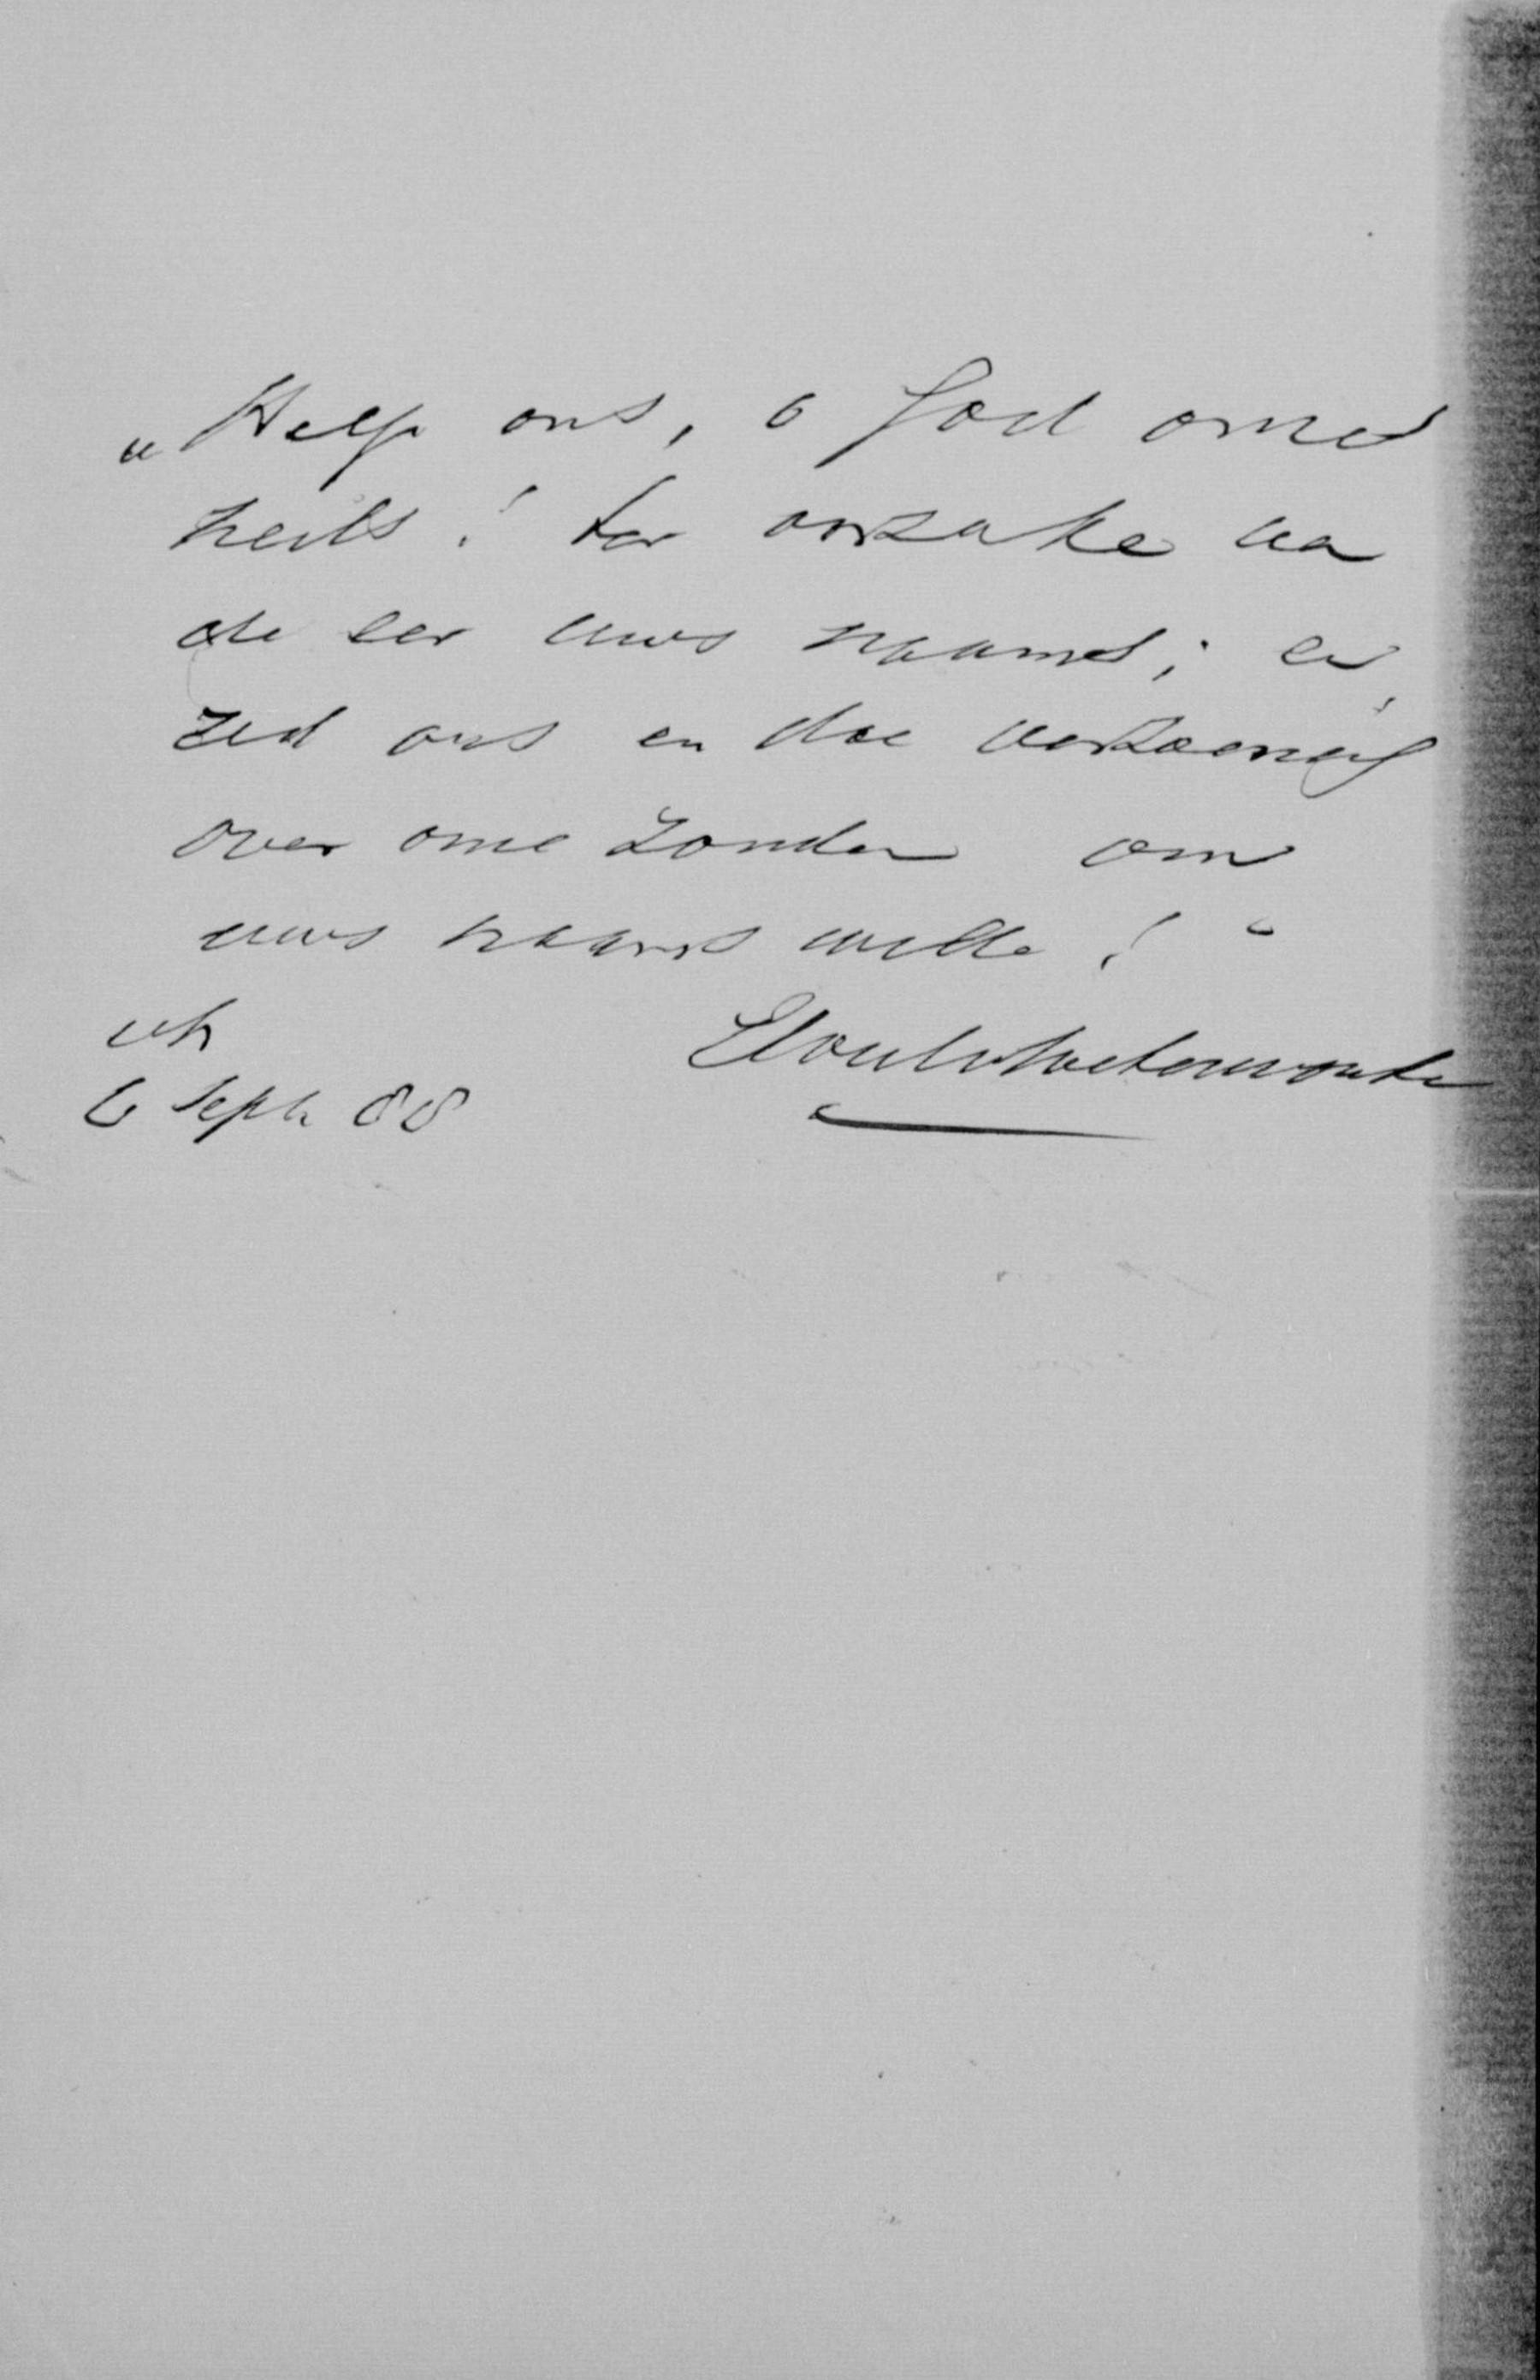 „Help ons, o God onzes
heils! ter oorzake van
de eer uws naams; en
red ons en doe verzoening
over onze zonden om
uws naams wille!"
6 Sept. 88
Elout v Soeterwoude